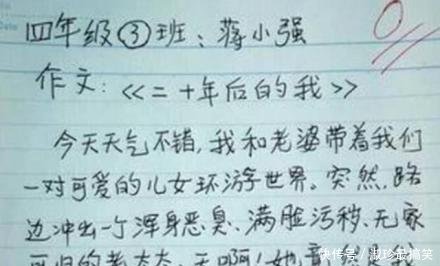 四年级③班：蒋小强
作文：<<二十年后的我>>
今天天气不错，我和老婆带着我们
一对可爱的儿女环游世界。突然，路
边冲出一个浑身恶臭、满脸污秽、无家
可归的老太太，天啊！她竟
快传号／淑珍最搞笑